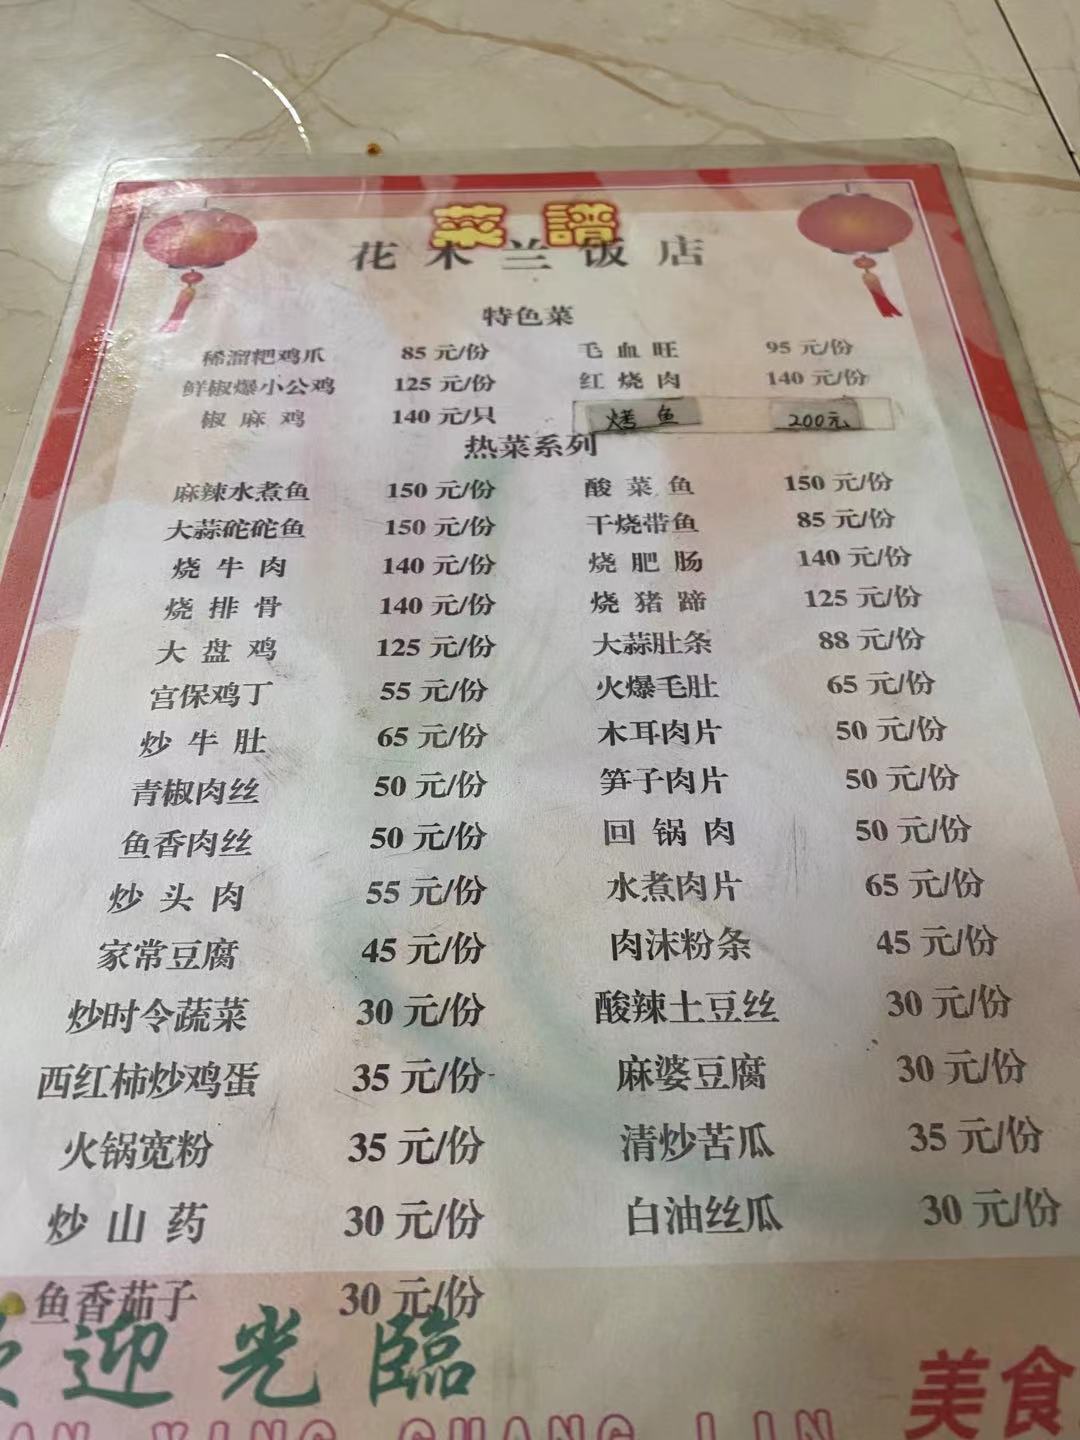 菜譜
花木兰饭店
特色菜
稀溜粑鸡爪 85 元/份 毛血旺 95 元/份
鲜椒爆小公鸡 125 元/份 红烧肉 140 元/份
椒麻鸡 140 元/只 烤鱼 200元
热菜系列
麻辣水煮鱼 150 元/份 酸菜鱼 150 元/份
大蒜砣砣鱼 150 元/份 干烧带鱼 85 元/份
烧牛肉 140 元/份 烧肥肠 140 元/份
烧排骨 140 元/份 烧猪蹄 125 元/份
大盘鸡 125 元/份 大蒜肚条 88 元/份
宫保鸡丁 55 元/份 火爆毛肚 65 元/份
炒牛肚 65 元/份 木耳肉片 50 元/份
青椒肉丝 50 元/份 笋子肉片 50 元/份
鱼香肉丝 50 元/份 回锅肉 50 元/份
炒头肉 55 元/份 水煮肉片 65 元/份
家常豆腐 45 元/份 肉沫粉条 45 元/份
炒时令蔬菜 30 元/份 酸辣土豆丝 30 元/份
西红柿炒鸡蛋 35 元/份 麻婆豆腐 30 元/份
火锅宽粉 35 元/份 清炒苦瓜 35 元/份
炒山药 30 元/份 白油丝瓜 30 元/份
鱼香茄子 30 元/份
迎光臨
美食
AN YING GUANG LIN